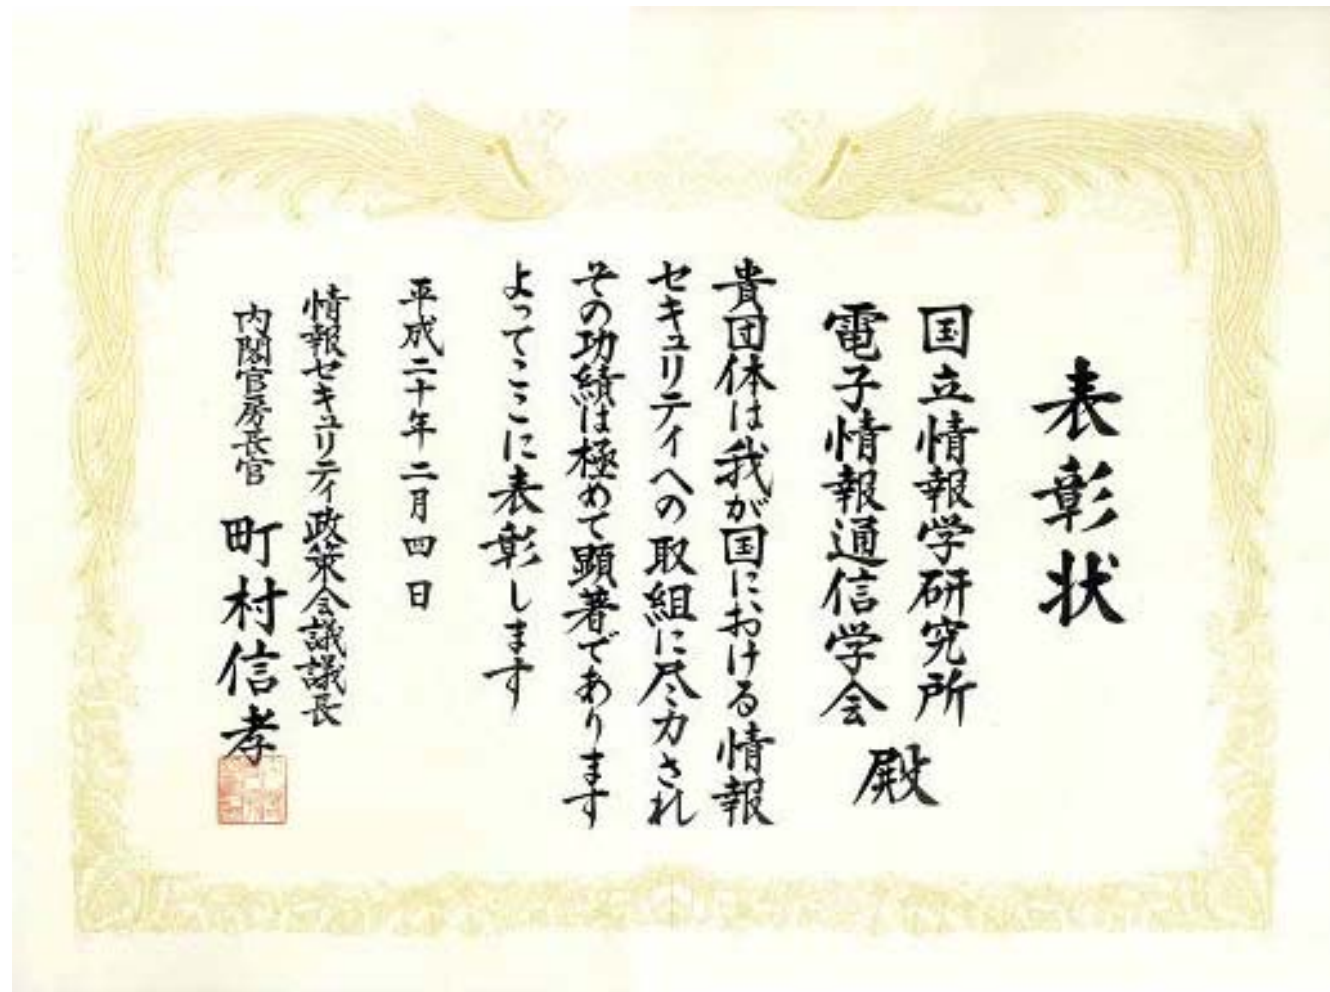 表彰状
国立情報学研究所
電子情報通信学会
殿
貴団体は我が国における情報
セキュリティへの取組に尽力され
その功績は極めて顕著であります
よってここに表彰します
平成二十年二月四日
情報セキュリティ政策会議議長
内閣官房長官 町村信孝